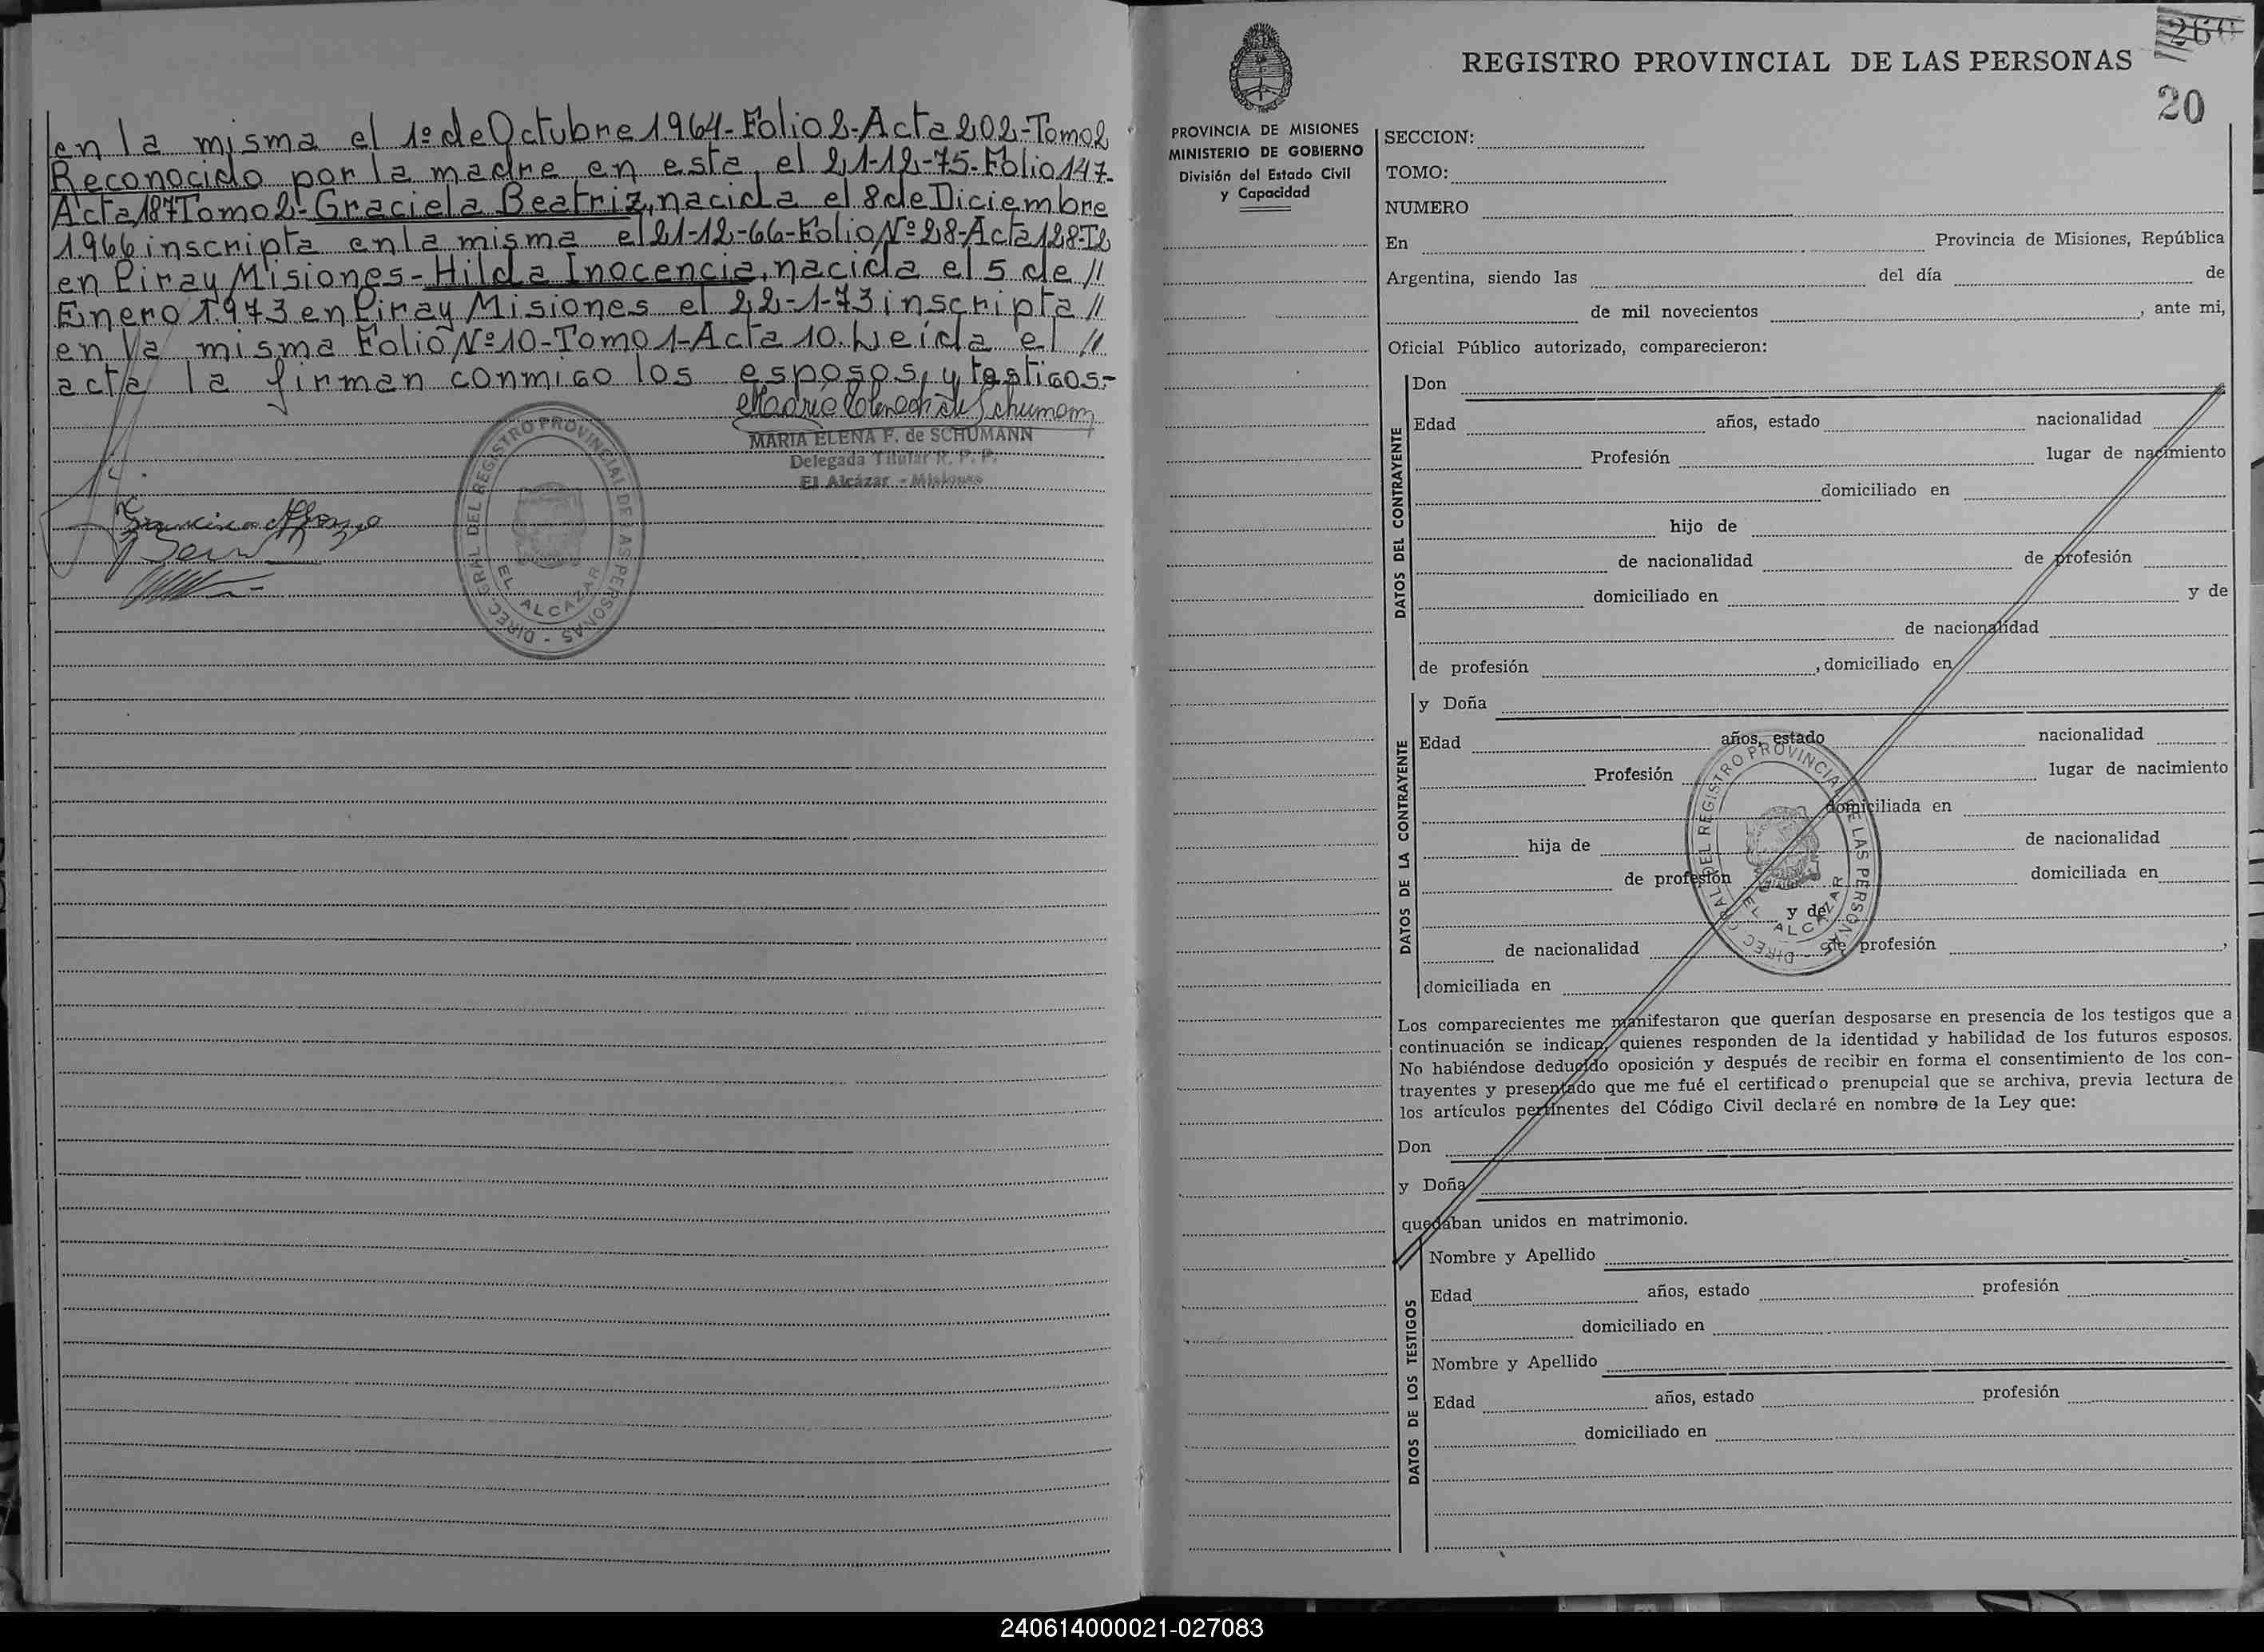 en la misma el 1º de Octubre 1.964-Folio 2-Acta 202-Tomo 2
Reconocido por la madre en esta, el 21-12-75-Folio 147-
Acta 187 Tomo 2-Graciela Beatriz, nacida el 8 de Diciembre
1.966 inscripta en la misma el 21-12-66-Folio Nº 28-Acta 128-T2
en Piray Misiones-Hilda Inocencia, nacida el 5 de //
Enero 1.973 en Piray Misiones el 22-1-73 inscripta //
en la misma Folio Nº 10-Tomo 1-Acta 10. Leída el //
acta la firman conmigo los esposos, y testigos.-
MARIA ELENA F. de SCHUMANN
Delegada Titular R. P. P.
El Alcázar - Misiones
DIREC. GRAL DEL REGISTRO PROVINCIAL DE LAS PERSONAS -
EL ALCAZAR
REGISTRO PROVINCIAL DE LAS PERSONAS
260
20
PROVINCIA DE MISIONES
MINISTERIO DE GOBIERNO
División del Estado Civil
y Capacidad
SECCION:
TOMO:
NUMERO
En Provincia de Misiones, República
Argentina, siendo las del día de
de mil novecientos , ante mi,
Oficial Público autorizado, comparecieron:
DATOS DEL CONTRAYENTE
Don
Edad años, estado nacionalidad
Profesión lugar de nacimiento
domiciliado en
hijo de
de nacionalidad de profesión
domiciliado en y de
de nacionalidad
de profesión , domiciliado en
DATOS DE LA CONTRAYENTE
y Doña
Edad años, estado nacionalidad
Profesión lugar de nacimiento
domiciliada en
hija de de nacionalidad
de profesión domiciliada en
y de
de nacionalidad de profesión ,
domiciliada en
DIREC. GRAL DEL REGISTRO PROVINCIAL DE LAS PERSONAS -
EL ALCAZAR
Los comparecientes me manifestaron que querían desposarse en presencia de los testigos que a
continuación se indican, quienes responden de la identidad y habilidad de los futuros esposos.
No habiéndose deducido oposición y después de recibir en forma el consentimiento de los con-
trayentes y presentado que me fué el certificado prenupcial que se archiva, previa lectura de
los artículos pertinentes del Código Civil declaré en nombre de la Ley que:
Don
y Doña
quedaban unidos en matrimonio.
DATOS DE LOS TESTIGOS
Nombre y Apellido
Edad años, estado profesión
domiciliado en
Nombre y Apellido
Edad años, estado profesión
domiciliado en
240614000021-027083